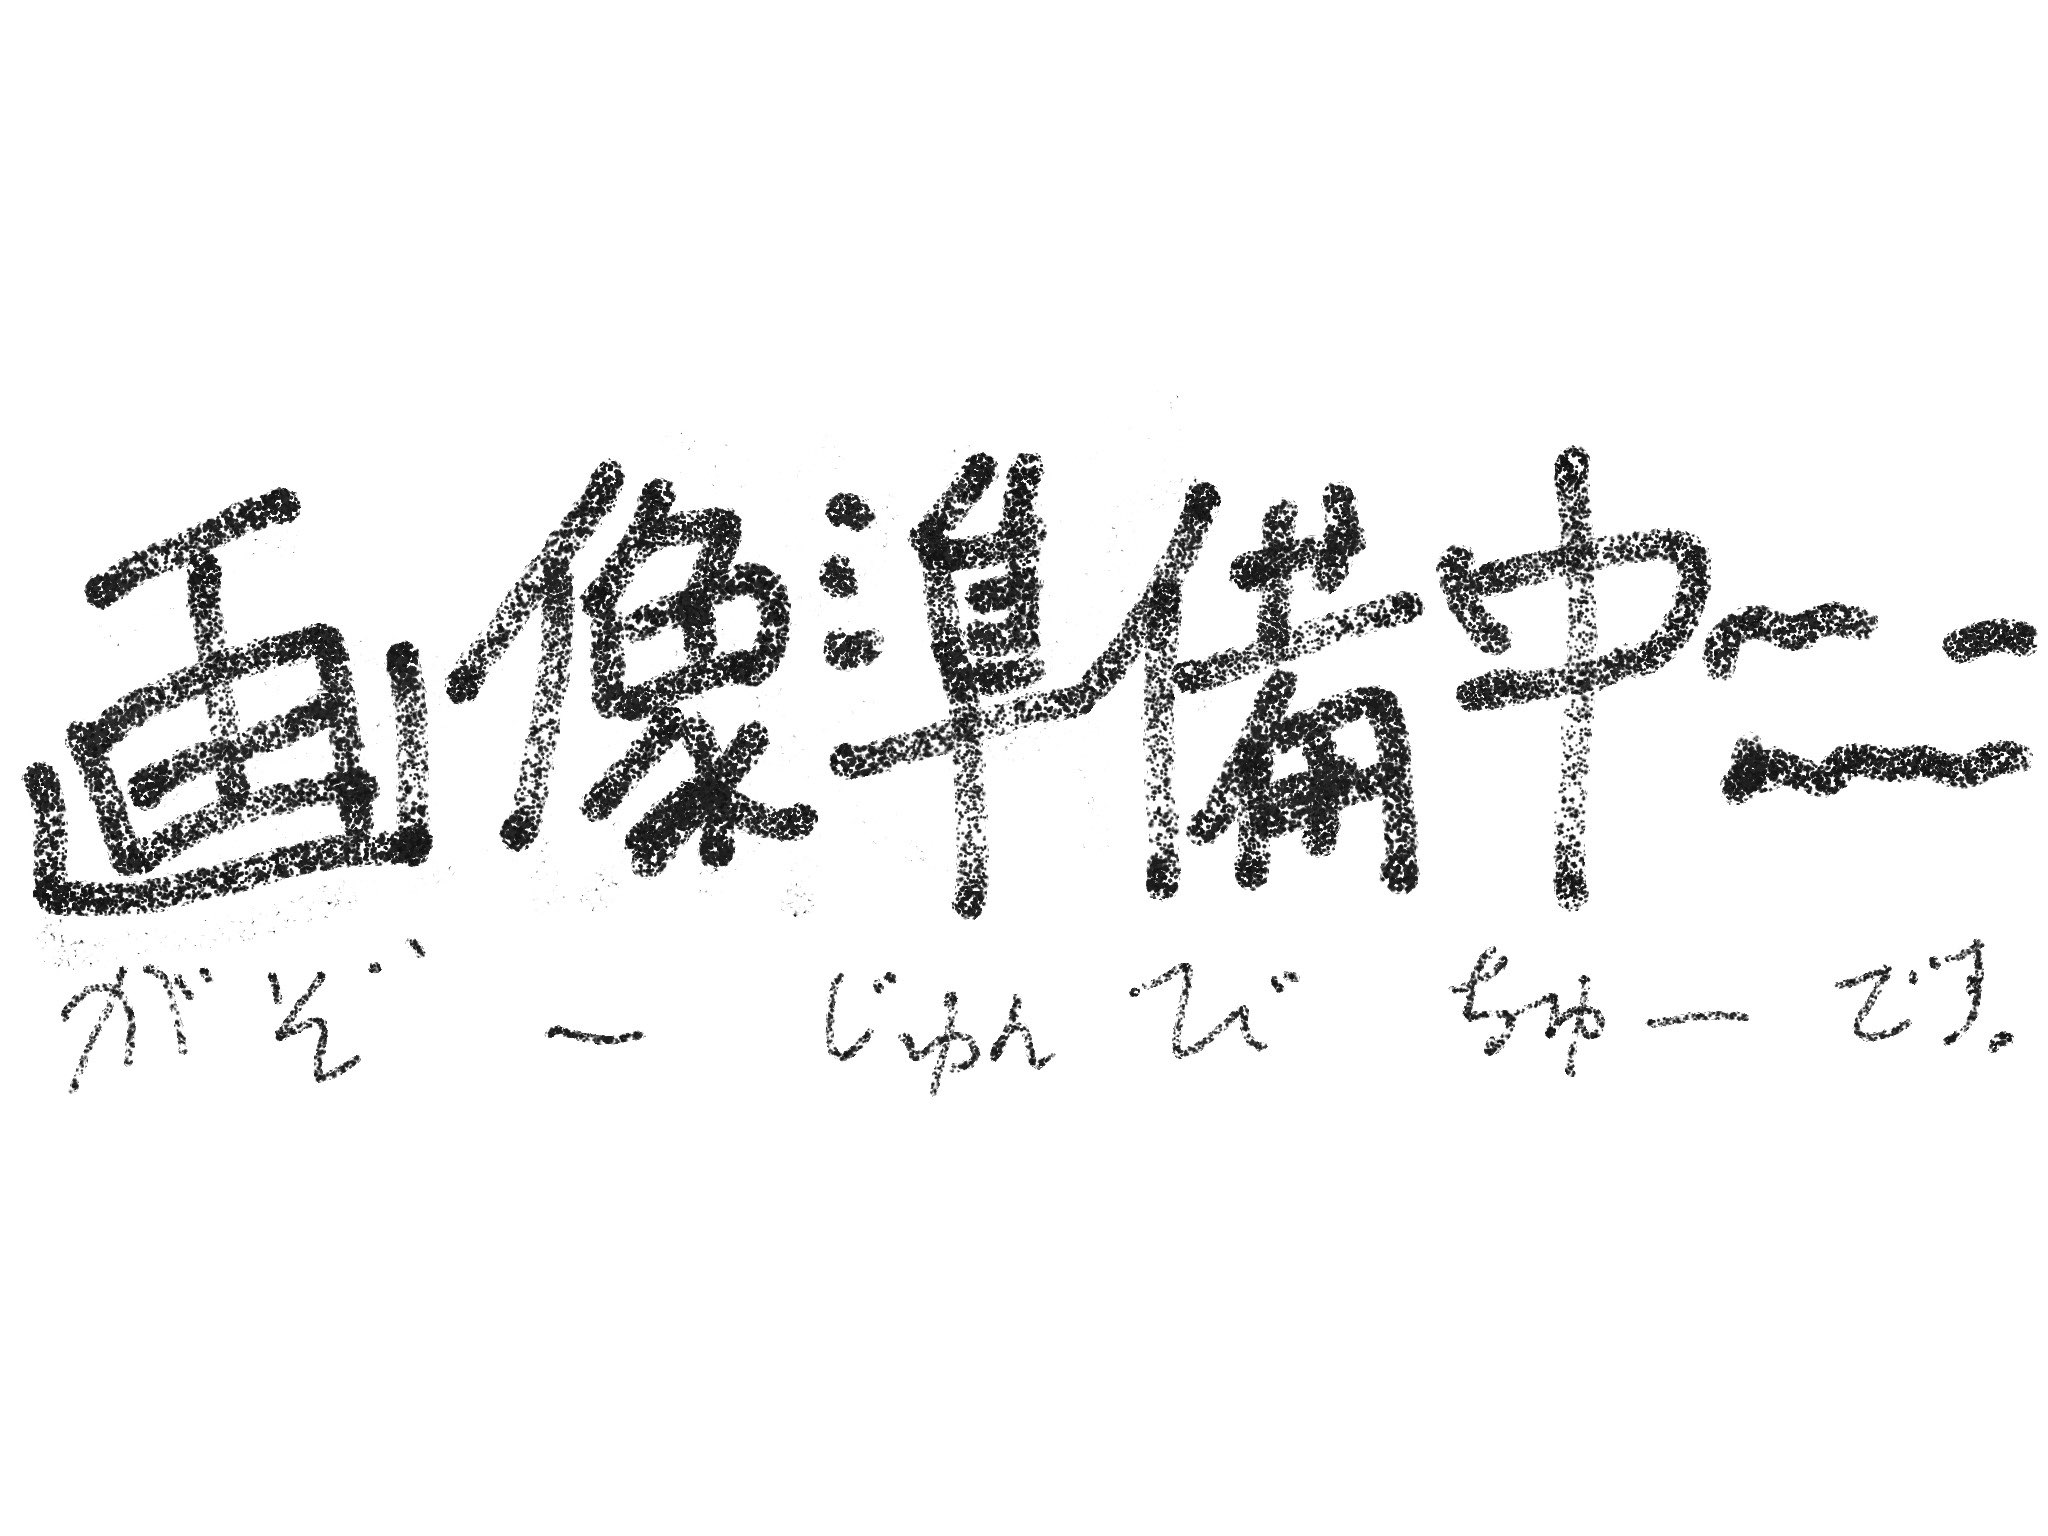 画像準備中
がぞーじゅんびちゅーです。